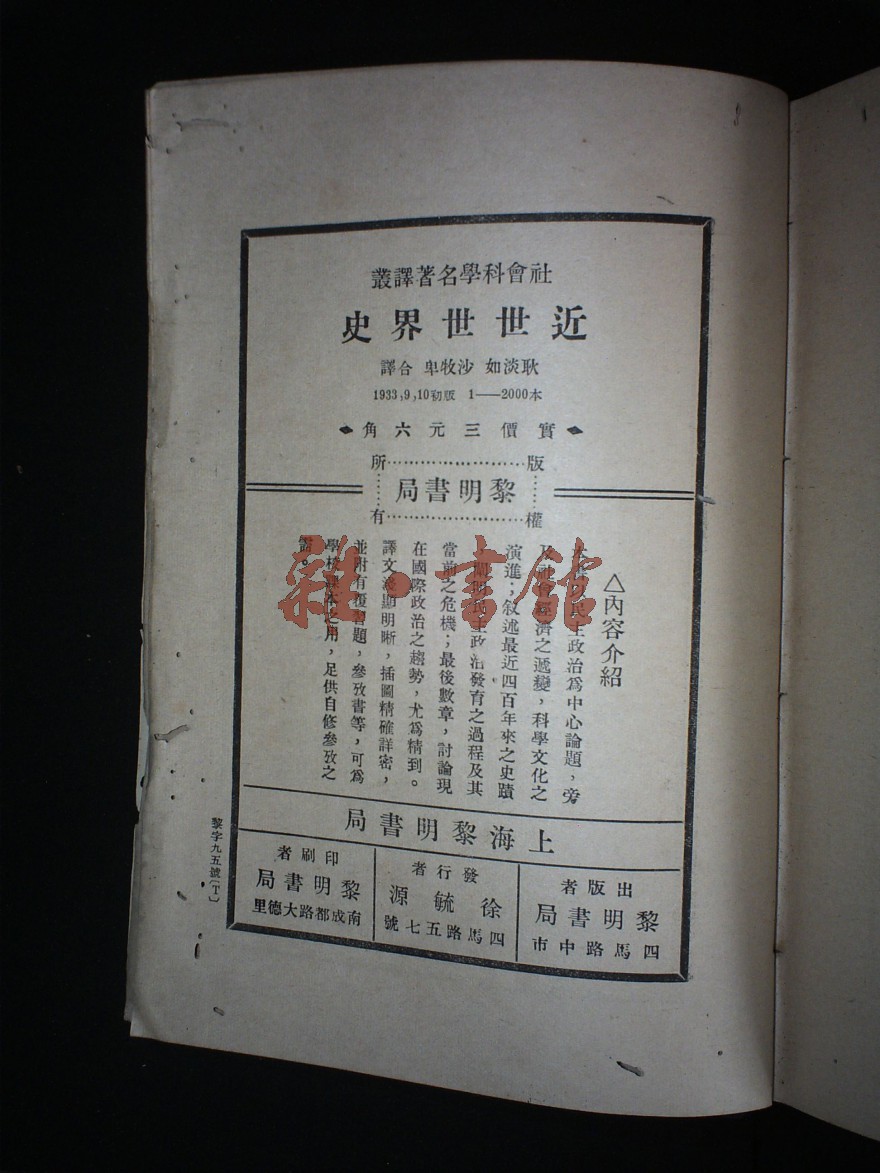 社會科學名著譯叢
近世世界史
耿淡如 沙牧卑 合譯
1933,9,10初版 1——2000本
實價三元六角
版權所有
黎明書局
△內容介紹
本書以民主政治爲中心論題,旁
及社會經濟之遞變,科學文化之
演進;敘述最近四百年來之史蹟
,闡明民主政治發育之過程及其
當前之危機;最後數章,討論現
在國際政治之趨勢,尤爲精到。
譯文淺顯明晰,插圖精確詳密,
並附有復習題,參攷書等,可爲
學校課本之用,足供自修參攷之
需。
上海黎明書局
出版者
黎明書局
四馬路中市
發行者
徐毓源
四馬路五七號
印刷者
黎明書局
南成都路大德里
黎字九五號〔T〕
雜·書館